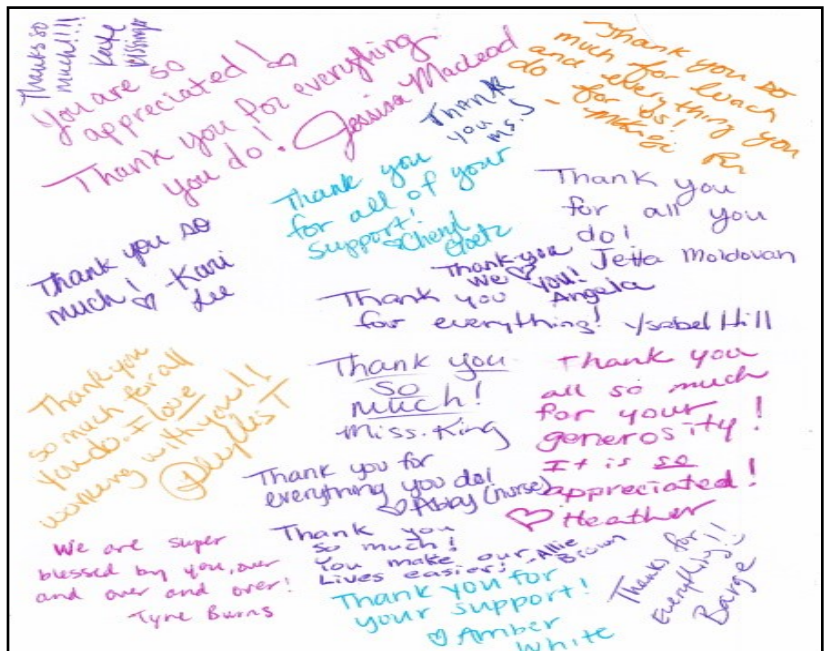 Thanks so
much!!!!
You are so
appreciated!
Thank you for everything
you do!
Jessica Macleod
Thank
you
Ms. J
Thank you so
much for lunch
and everything you
do for us!
Thank you
for all of your
support!
Cheryl
Goetz
Thank you
for all you
do!
Jetta Moldovan
Thank you so
much!
Kari
Lee
Thank you
We you!
Angela
Thank you
for everything! Ysabel Hill
Thank you
so much for all
you do. I love
working with you!!
Phyllis T
Thank you
so
much!
Miss. King
Thank you
all so much
for your
generosity!
It is so
appreciated!
Heather
Thank you for
everything you do!
Abby (nurse)
We are super
blessed by you, over
and over and over!
Tyne Burns
Thank you
so much!
You make our
Lives easier! -Allie
Brown
Thank you for
your support!
Amber
White
Thanks for
Everything!!
Barge